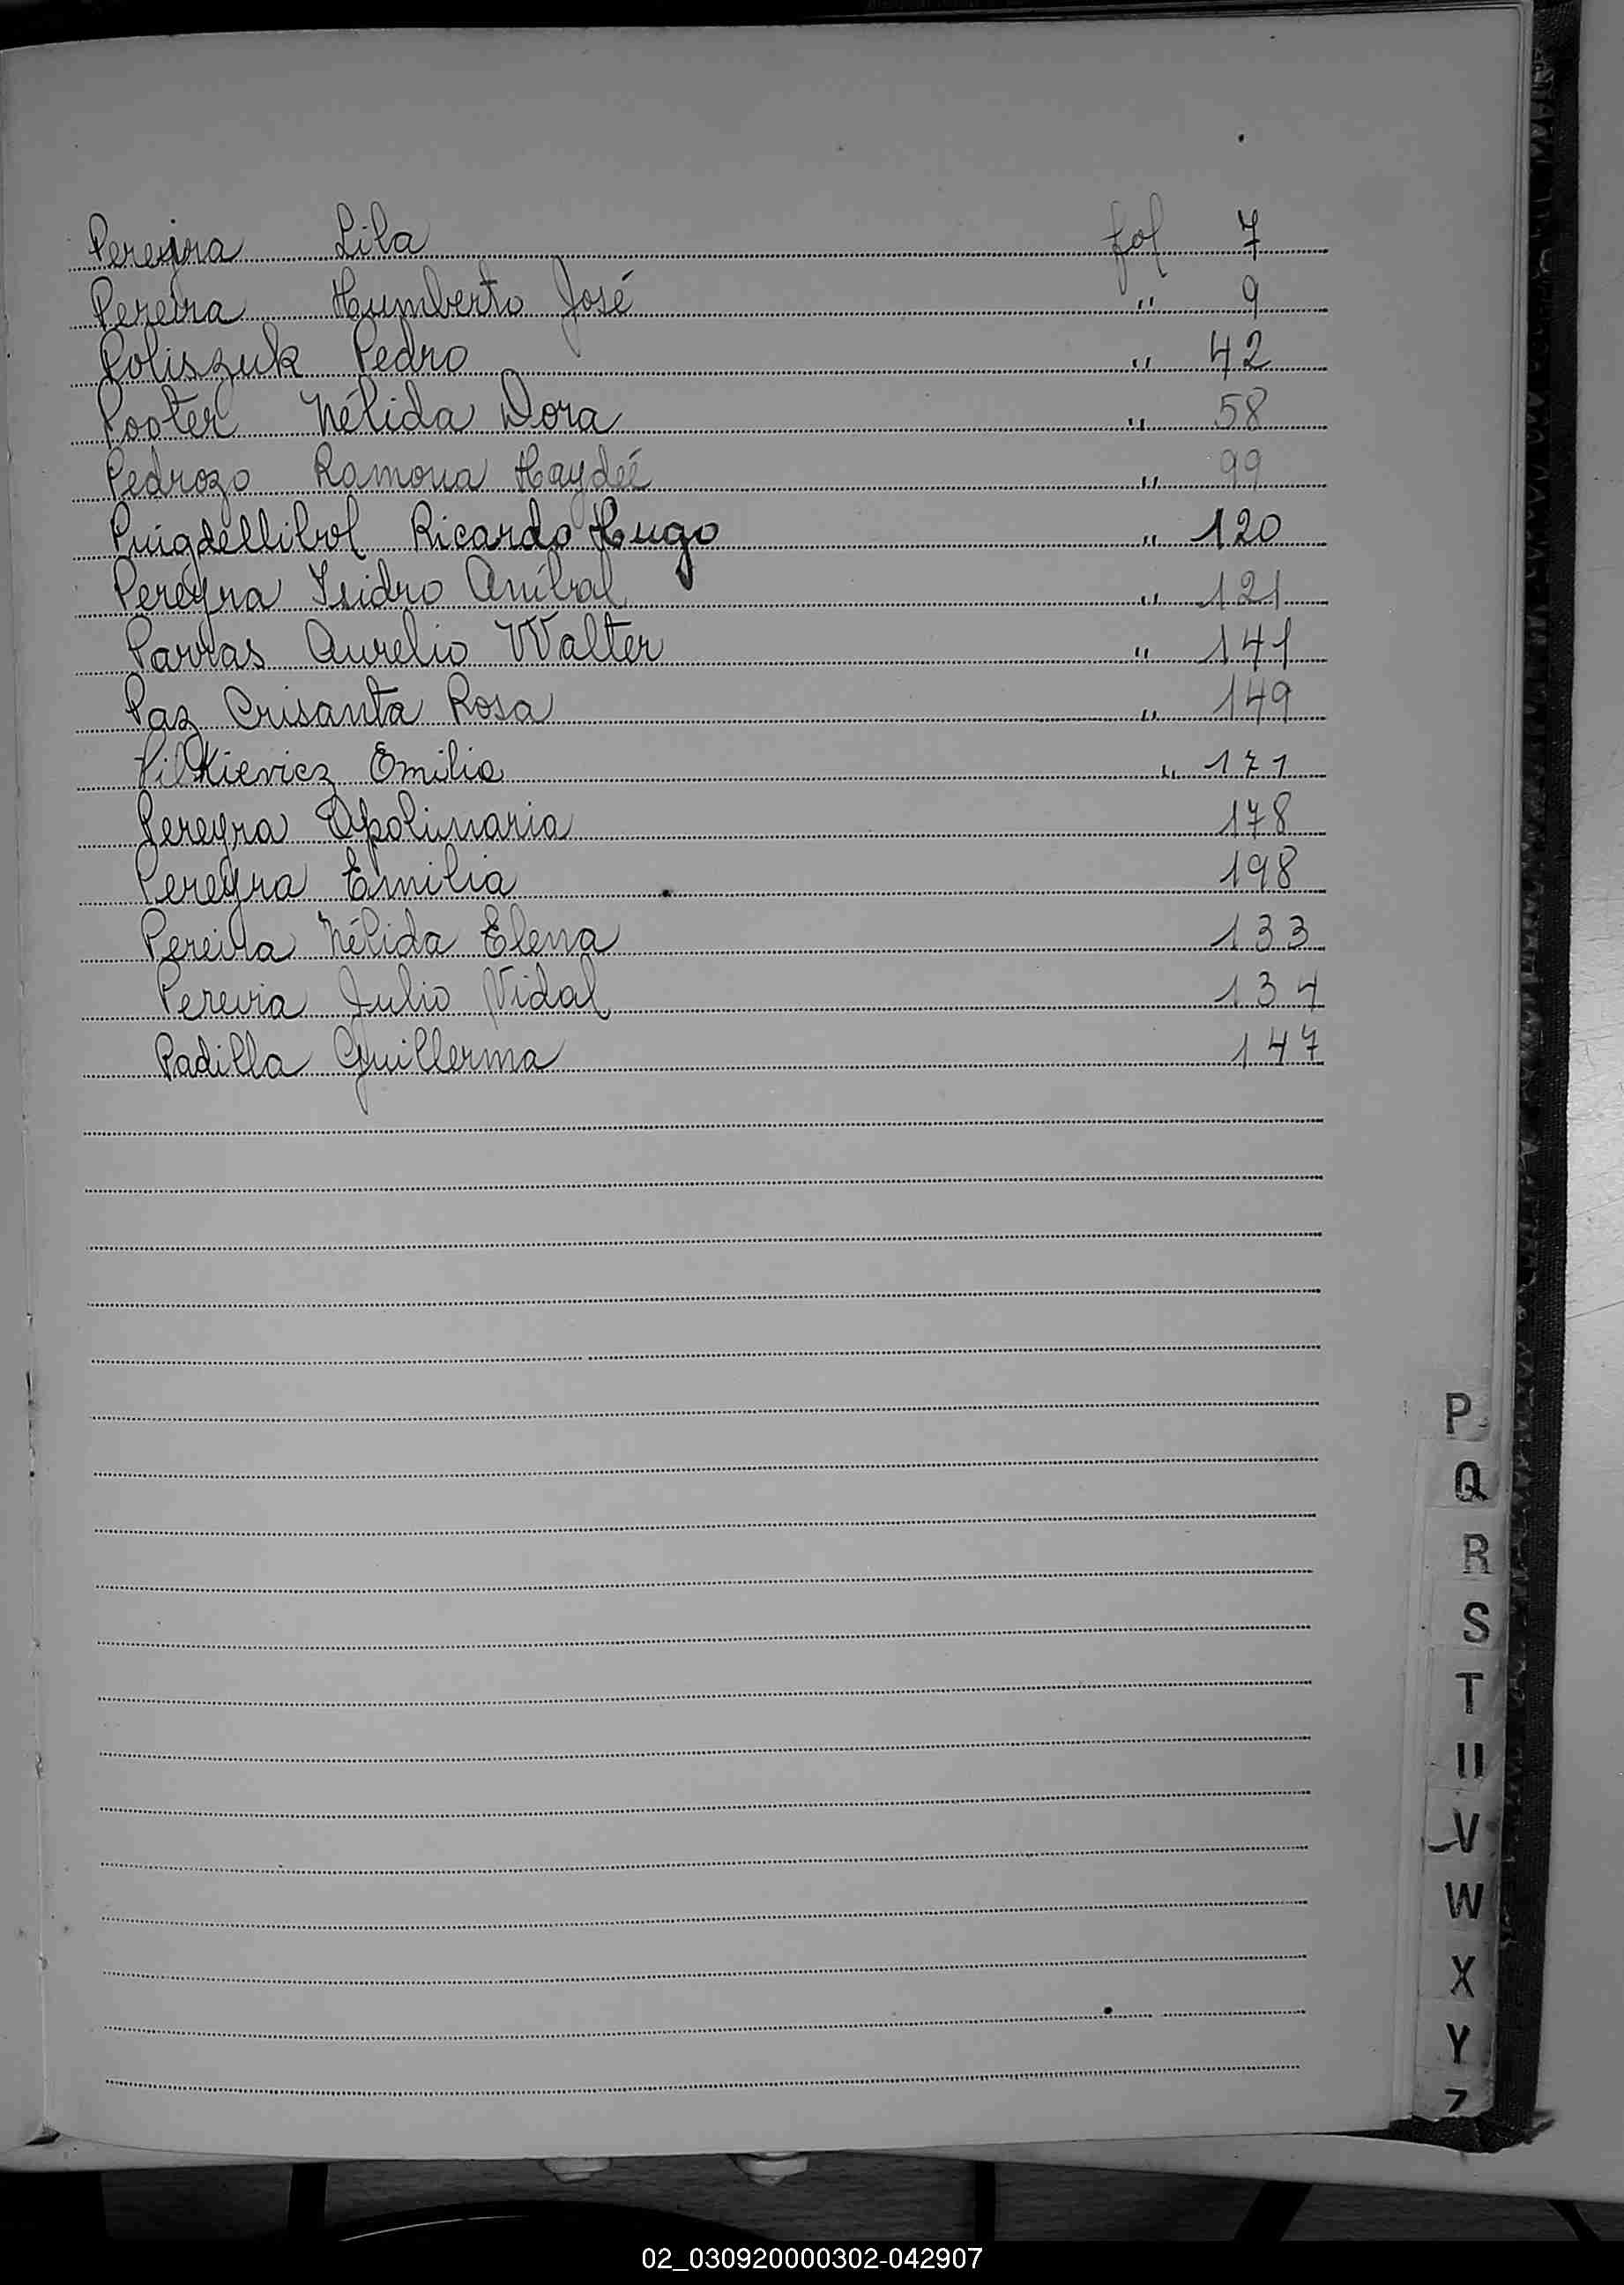 Pereyra Lila fol 7
Pereira Humberto José " 9
Poliszuk Pedro " 42
Pooter Nélida Dora " 58
Pedrozo Ramona Haydeé " 99
Puigdellibol Ricardo Hugo " 120
Pereyra Isidro Aníbal " 121
Parras Aurelio Walter " 141
Paz Crisanta Rosa " 149
Pilkievicz Emilia " 171
Pereyra Apolinaria 178
Pereyra Emilia 198
Pereira Nélida Elena 133
Pereira Julio Vidal 134
Padilla Guillerma 147
P
Q
R
S
T
U
V
W
X
Y
Z
02_030920000302-042907